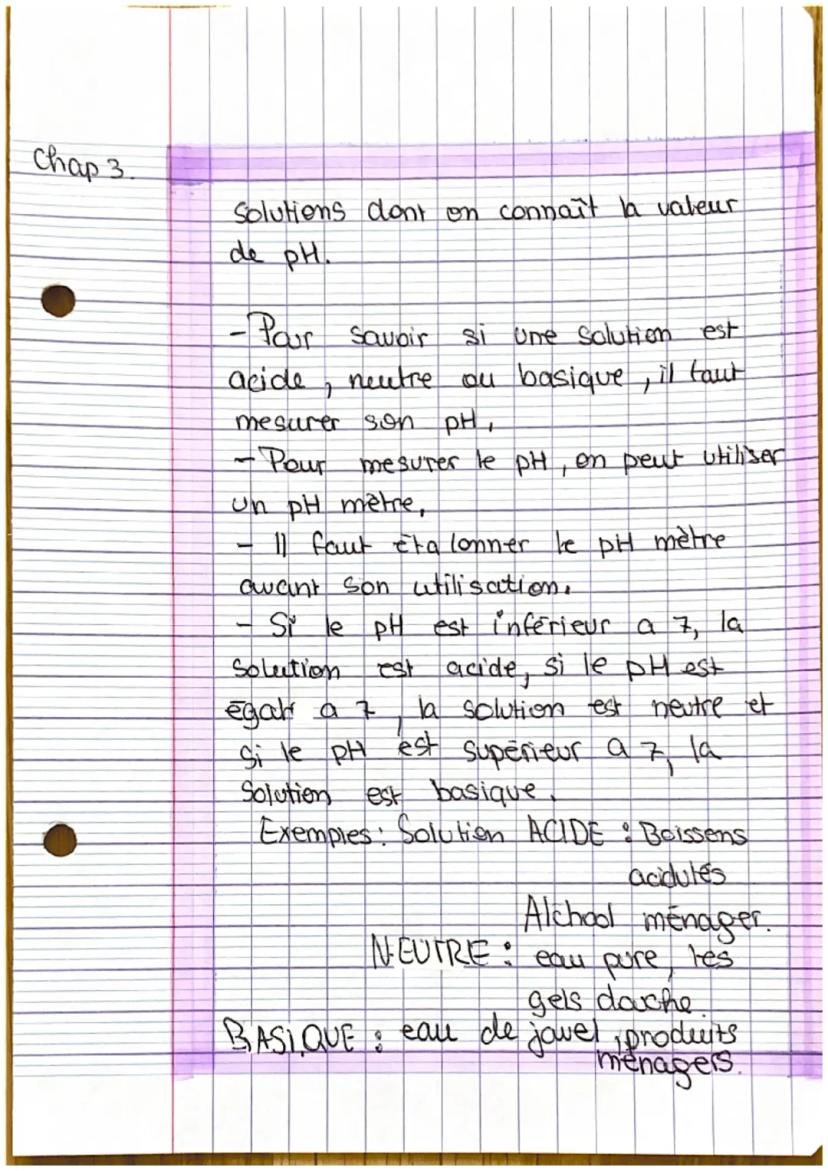 Chap 3.
Solutions dont on connaît la valeur
de pH.
- Pour savoir si une solution est
acide, neutre ou basique, il faut
mesurer son pH.
- Pour mesurer le pH, on peut utiliser
un pH mètre.
- Il faut étalonner le pH mètre
avant son utilisation.
- Si le pH est inférieur a 7, la
solution est acide, si le pH est
égale a 7, la solution est neutre et
si le pH est supérieur a 7, la
solution est basique.
Exemples : Solution ACIDE : Boissons
acidulés
Alchool ménager.
NEUTRE : eau pure, les
gels douche.
BASIQUE : eau de javel, produits
ménagers.